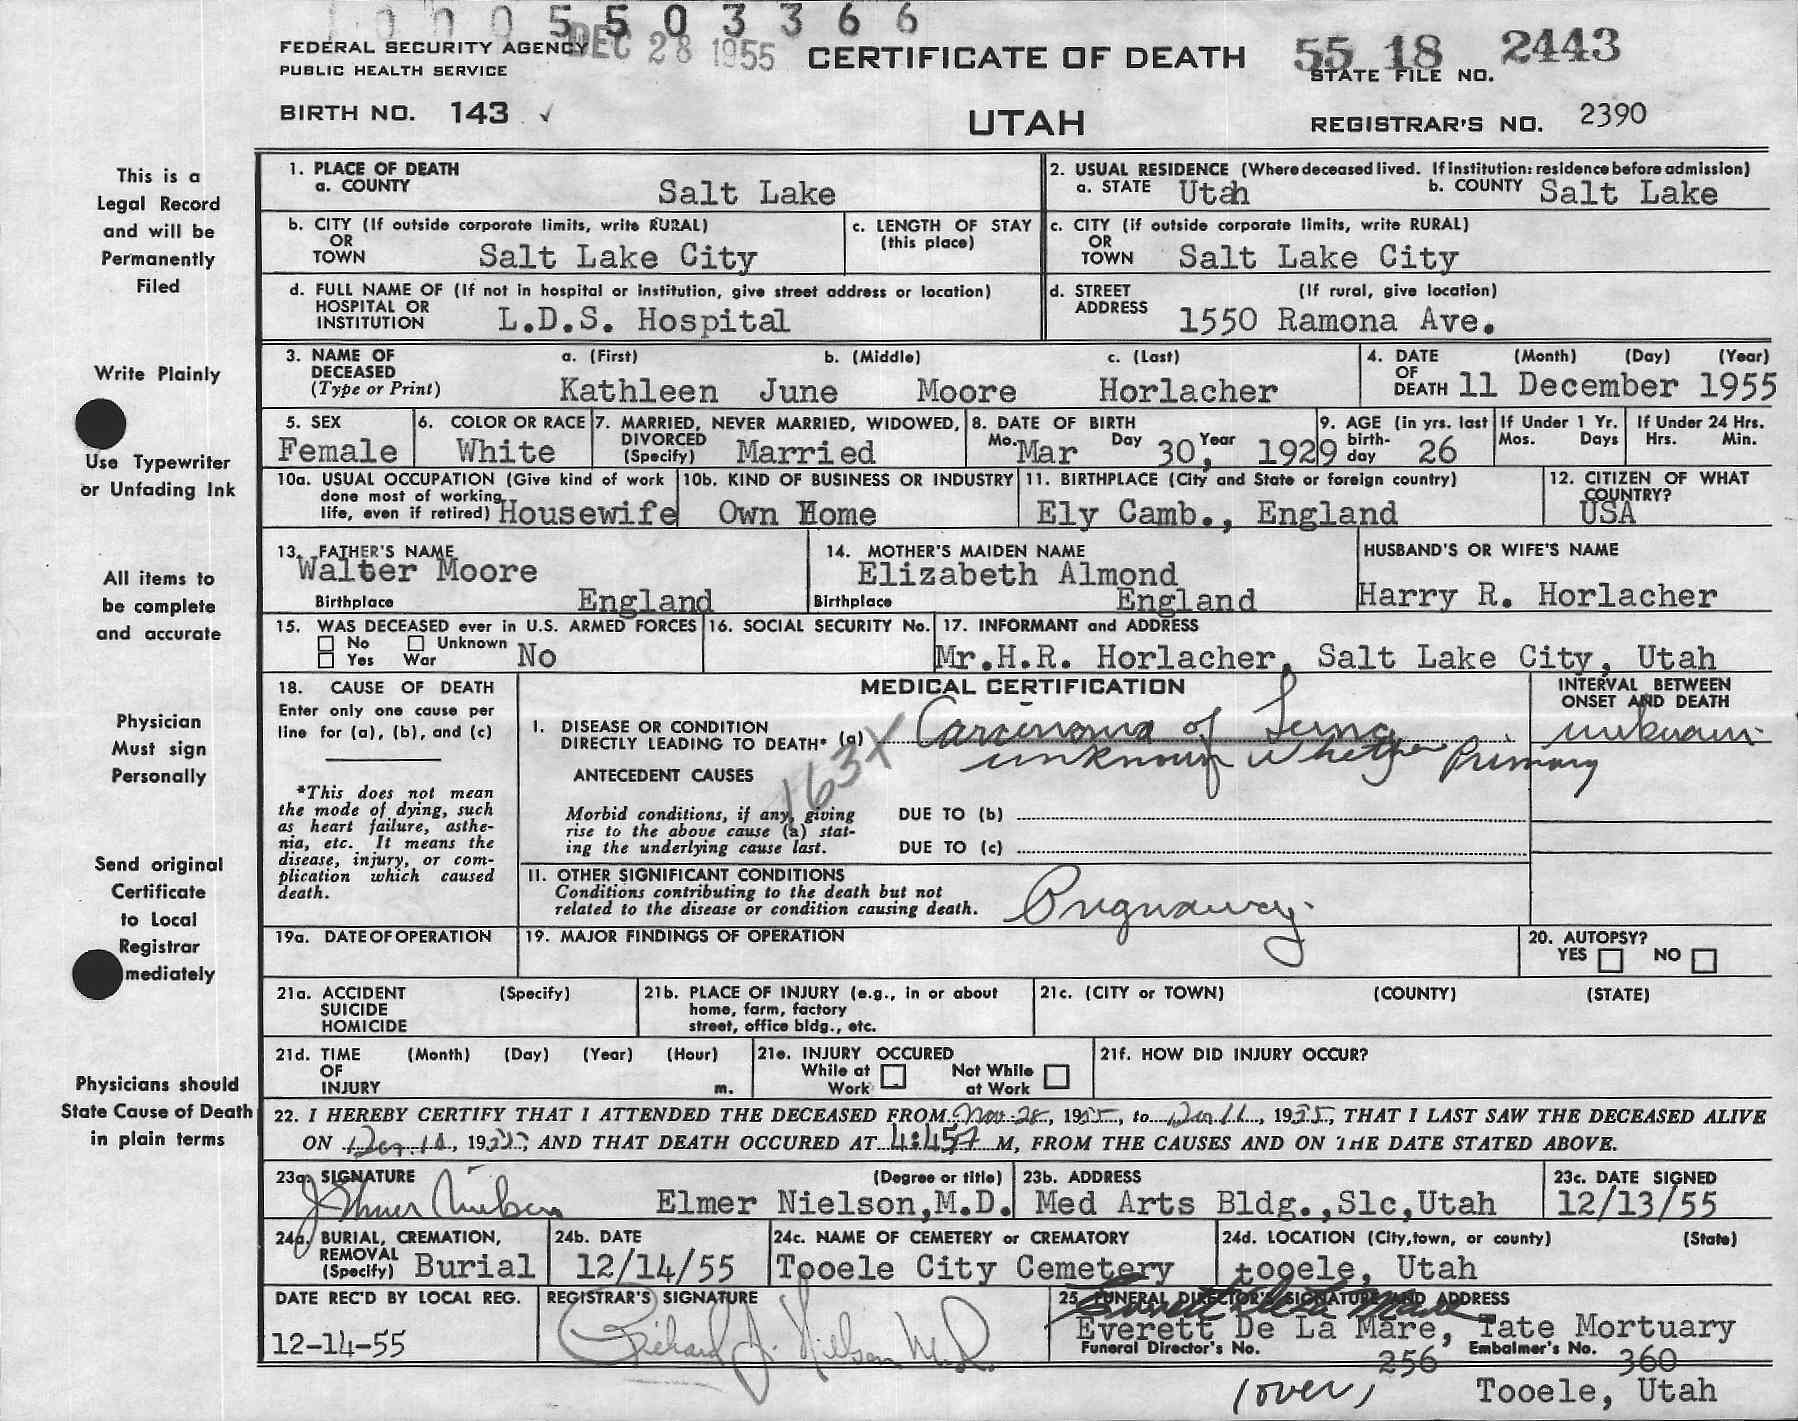 1 0 0 0 5 5 0 3 3 6 6
FEDERAL SECURITY AGENCY DEC 28 1955 CERTIFICATE OF DEATH 55 18 2443
PUBLIC HEALTH SERVICE STATE FILE NO.
BIRTH NO. 143 UTAH REGISTRAR'S NO. 2390
This is a
Legal Record
and will be
Permanently
Filed
1. PLACE OF DEATH
a. COUNTY Salt Lake
2. USUAL RESIDENCE (Where deceased lived. If institution: residence before admission)
a. STATE Utah b. COUNTY Salt Lake
b. CITY (If outside corporate limits, write RURAL)
OR
TOWN Salt Lake City
c. LENGTH OF STAY
(this place)
c. CITY (if outside corporate limits, write RURAL)
OR
TOWN Salt Lake City
d. FULL NAME OF (If not in hospital or institution, give street address or location)
HOSPITAL OR
INSTITUTION L.D.S. Hospital
d. STREET (If rural, give location)
ADDRESS 1550 Ramona Ave.
Write Plainly
3. NAME OF a. (First) b. (Middle) c. (Last)
DECEASED
(Type or Print) Kathleen June Moore Horlacher
4. DATE (Month) (Day) (Year)
OF
DEATH 11 December 1955
Use Typewriter
or Unfading Ink
5. SEX
Female
6. COLOR OR RACE
White
7. MARRIED, NEVER MARRIED, WIDOWED,
DIVORCED
(Specify) Married
8. DATE OF BIRTH
Mo. Mar Day 30, Year 1929
9. AGE (in yrs. last
birth-
day 26
If Under 1 Yr.
Mos. Days
If Under 24 Hrs.
Hrs. Min.
10a. USUAL OCCUPATION (Give kind of work
done most of working
life, even if retired) Housewife
10b. KIND OF BUSINESS OR INDUSTRY
Own Home
11. BIRTHPLACE (City and State or foreign country)
Ely Camb., England
12. CITIZEN OF WHAT
COUNTRY?
USA
All items to
be complete
and accurate
13. FATHER'S NAME
Walter Moore
Birthplace England
14. MOTHER'S MAIDEN NAME
Elizabeth Almond
Birthplace England
HUSBAND'S OR WIFE'S NAME
Harry R. Horlacher
15. WAS DECEASED ever in U.S. ARMED FORCES
No Unknown
Yes War No
16. SOCIAL SECURITY No.
17. INFORMANT and ADDRESS
Mr.H.R. Horlacher, Salt Lake City, Utah
Physician
Must sign
Personally
18. CAUSE OF DEATH
Enter only one cause per
line for (a), (b), and (c)
*This does not mean
the mode of dying, such
as heart failure, asthe-
nia, etc. It means the
disease, injury, or com-
plication which caused
death.
MEDICAL CERTIFICATION
INTERVAL BETWEEN
ONSET AND DEATH
I. DISEASE OR CONDITION
DIRECTLY LEADING TO DEATH* (a) Carcinoma of Lung unknown
unknown whether Primary
163X
ANTECEDENT CAUSES
Morbid conditions, if any, giving
rise to the above cause (a) stat-
ing the underlying cause last.
DUE TO (b)
DUE TO (c)
Send original
Certificate
to Local
Registrar
mediately
11. OTHER SIGNIFICANT CONDITIONS
Conditions contributing to the death but not
related to the disease or condition causing death. Pregnancy
19a. DATE OF OPERATION
19. MAJOR FINDINGS OF OPERATION
20. AUTOPSY?
YES NO
21a. ACCIDENT (Specify)
SUICIDE
HOMICIDE
21b. PLACE OF INJURY (e.g., in or about
home, farm, factory
street, office bldg., etc.
21c. (CITY or TOWN) (COUNTY) (STATE)
21d. TIME (Month) (Day) (Year) (Hour)
OF
INJURY m.
21e. INJURY OCCURED
While at Not While
Work at Work
21f. HOW DID INJURY OCCUR?
Physicians should
State Cause of Death
in plain terms
22. I HEREBY CERTIFY THAT I ATTENDED THE DECEASED FROM Nov. 28, 1955, to Dec 11, 1955, THAT I LAST SAW THE DECEASED ALIVE
ON Dec. 10, 1955, AND THAT DEATH OCCURED AT 4:45 A M, FROM THE CAUSES AND ON THE DATE STATED ABOVE.
23a. SIGNATURE (Degree or title)
J Elmer Nielsen Elmer Nielson,M.D.
23b. ADDRESS
Med Arts Bldg.,Slc,Utah
23c. DATE SIGNED
12/13/55
24a. BURIAL, CREMATION,
REMOVAL
(Specify) Burial
24b. DATE
12/14/55
24c. NAME OF CEMETERY or CREMATORY
Tooele City Cemetery
24d. LOCATION (City,town, or county) (State)
tooele, Utah
DATE REC'D BY LOCAL REG.
12-14-55
REGISTRAR'S SIGNATURE
Richard J. Nilsen M.D.
25. FUNERAL DIRECTOR'S SIGNATURE AND ADDRESS
Everett De La Mare
Everett De La Mare, Tate Mortuary
Funeral Director's No. 256 Embalmer's No. 360
(over) Tooele, Utah